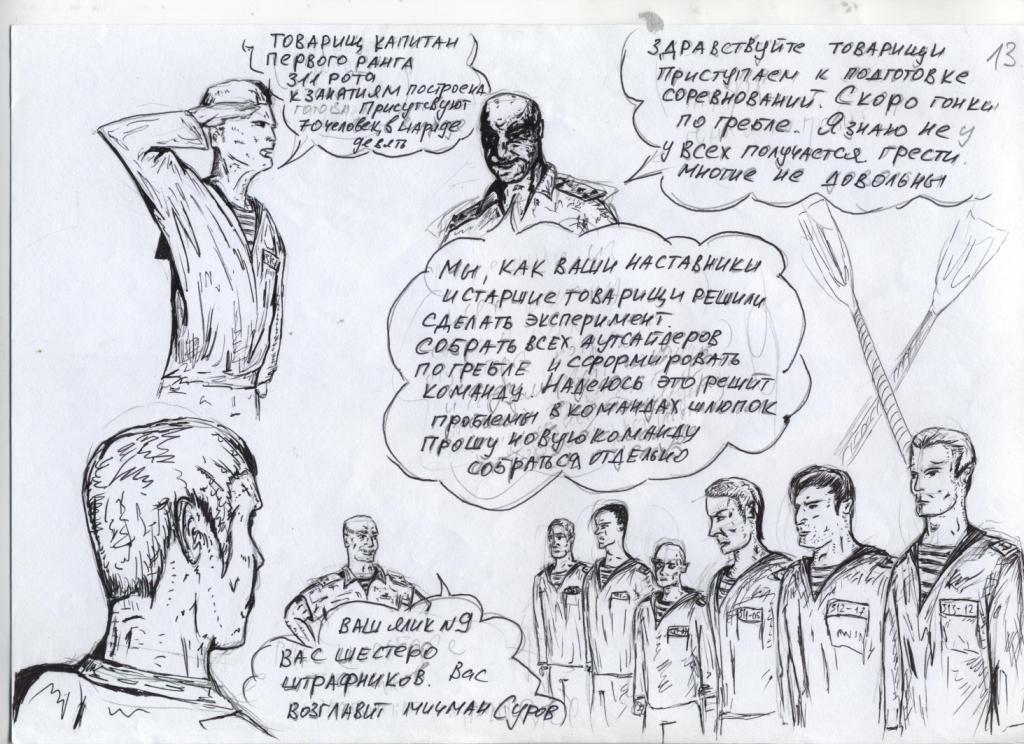 ТОВАРИЩ КАПИТАН
ПЕРВОГО РАНГА
311 РОТА
К ЗАНЯТИЯМ ПОСТРОЕНА
ГОТОВА. ПРИСУТСВУЮТ
70 ЧЕЛОВЕК, В НАРЯДЕ
ДЕВЯТЬ
ЗДРАВСТВУЙТЕ ТОВАРИЩИ
ПРИСТУПАЕМ К ПОДГОТОВКЕ
СОРЕВНОВАНИЙ. СКОРО ГОНКИ
ПО ГРЕБЛЕ. Я ЗНАЮ НЕ У
У ВСЕХ ПОЛУЧАЕТСЯ ГРЕСТИ.
МНОГИЕ НЕ ДОВОЛЬНЫ
13
МЫ, КАК ВАШИ НАСТАВНИКИ
И СТАРШИЕ ТОВАРИЩИ РЕШИЛИ
СДЕЛАТЬ ЭКСПЕРИМЕНТ.
СОБРАТЬ ВСЕХ АУТСАЙДЕРОВ
ПО ГРЕБЛЕ И СФОРМИРОВАТЬ
КОМАНДУ. НАДЕЮСЬ ЭТО РЕШИТ
ПРОБЛЕМЫ В КОМАНДАХ ШЛЮПОК
ПРОШУ НОВУЮ КОМАНДУ
СОБРАТЬСЯ ОТДЕЛЬНО
ВАШ ЯЛИК №9
ВАС ШЕСТЕРО
ШТРАФНИКОВ. ВАС
ВОЗГЛАВИТ МИЧМАН СУРОВ
312-17
313-12